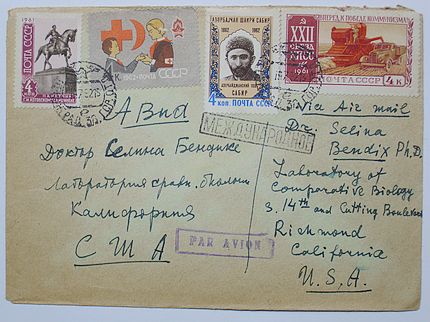 1961
ПОЧТА СССР
4к
1962
ПОЧТА СССР
АЗӘРБАЈҸАН ШАИРИ САБИР
1862 1962
АЗЕРБАЙДЖАНСКИЙ ПОЭТ
САБИР
4 коп. ПОЧТА СССР
ВПЕРЕД К ПОБЕДЕ КОММУНИЗМА!
XXII
СЪЕЗД
КПСС
1961
ПОЧТА СССР 4 К
МЕЖДУНАРОДНОЕ
Авиа
Доктор Селина Бендикс
Лаборатория сравн. биологии
Калифорния
США
PAR AVION
Via Air mail
Dr. Selina
Bendix Ph.D.
Laboratory of
Comparative Biology
S. 14th and Cutting Boulevard
Richmond
California
U.S.A.